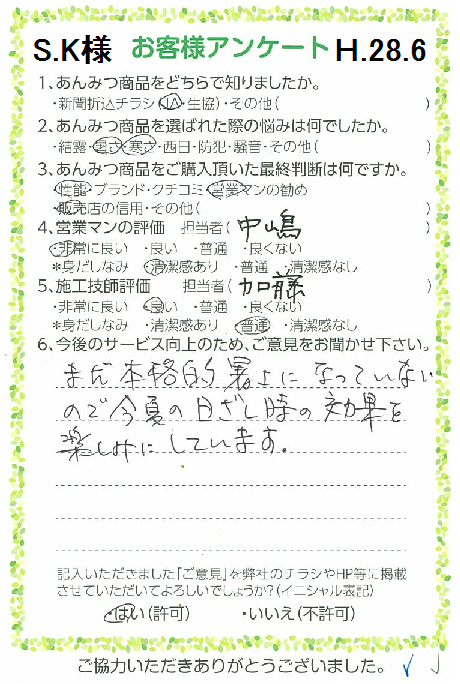 S.K様 お客様アンケート H.28.6
1、あんみつ商品をどちらで知りましたか。
・新聞折込チラシ・(JA・生協)・その他( )
2、あんみつ商品を選ばれた際の悩みは何でしたか。
・結露・暑さ・寒さ・西日・防犯・騒音・その他( )
3、あんみつ商品をご購入頂いた最終判断は何ですか。
・性能・ブランド・クチコミ・営業マンの勧め
・販売店の信用・その他( )
4、営業マンの評価 担当者( 中嶋 )
・非常に良い ・良い ・普通 ・良くない
*身だしなみ ・清潔感あり ・普通 ・清潔感なし
5、施工技師評価 担当者( 加藤 )
・非常に良い ・良い ・普通 ・良くない
*身だしなみ ・清潔感あり ・普通 ・清潔感なし
6、今後のサービス向上のため、ご意見をお聞かせ下さい。
まだ本格的暑さになっていない
ので今夏の日ざし時の効果を
楽しみにしています。
記入いただきました「ご意見」を弊社のチラシやHP等に掲載
させていただいてよろしいでしょうか?(イニシャル表記)
・はい(許可) ・いいえ(不許可)
ご協力いただきありがとうございました。